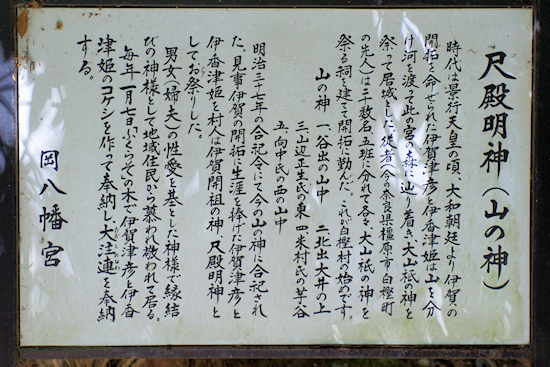 尺殿明神(山の神)
時代は景行天皇の頃、大和朝廷より伊賀の
開拓を命ぜられた伊賀津彦と伊香津姫は山を分
け河を渡って此の宮の森に辿り着き大山祇の神を
祭って居城とした。従者(今の奈良県橿原市白樫町
の先人)は三十数名、五班に分れて各々大山祇の神を
祭る祠を建て開拓に勤んだ。これが白樫村の始めです。
山の神 一、谷出の山中 二、北出大井の上
三、山辺正生氏の東 四、米村氏の芋谷
五、向中氏の西の山中
明治三十年の合祀令にて今の山の神に合祀され
た。見事伊賀の開拓に生涯を捧げた伊賀津彦と
伊香津姫を村人は伊賀開祖の神、尺殿明神と
してお祭りした。
男女(夫婦)の性愛を基とした神様で縁結
びの神様として地域住民から慕われ敬われて居る。
毎年一月七日「ふくらそ」の木で伊賀津彦と伊香
津姫のコケシを作って奉納し大注連を奉納
する。
岡八幡宮